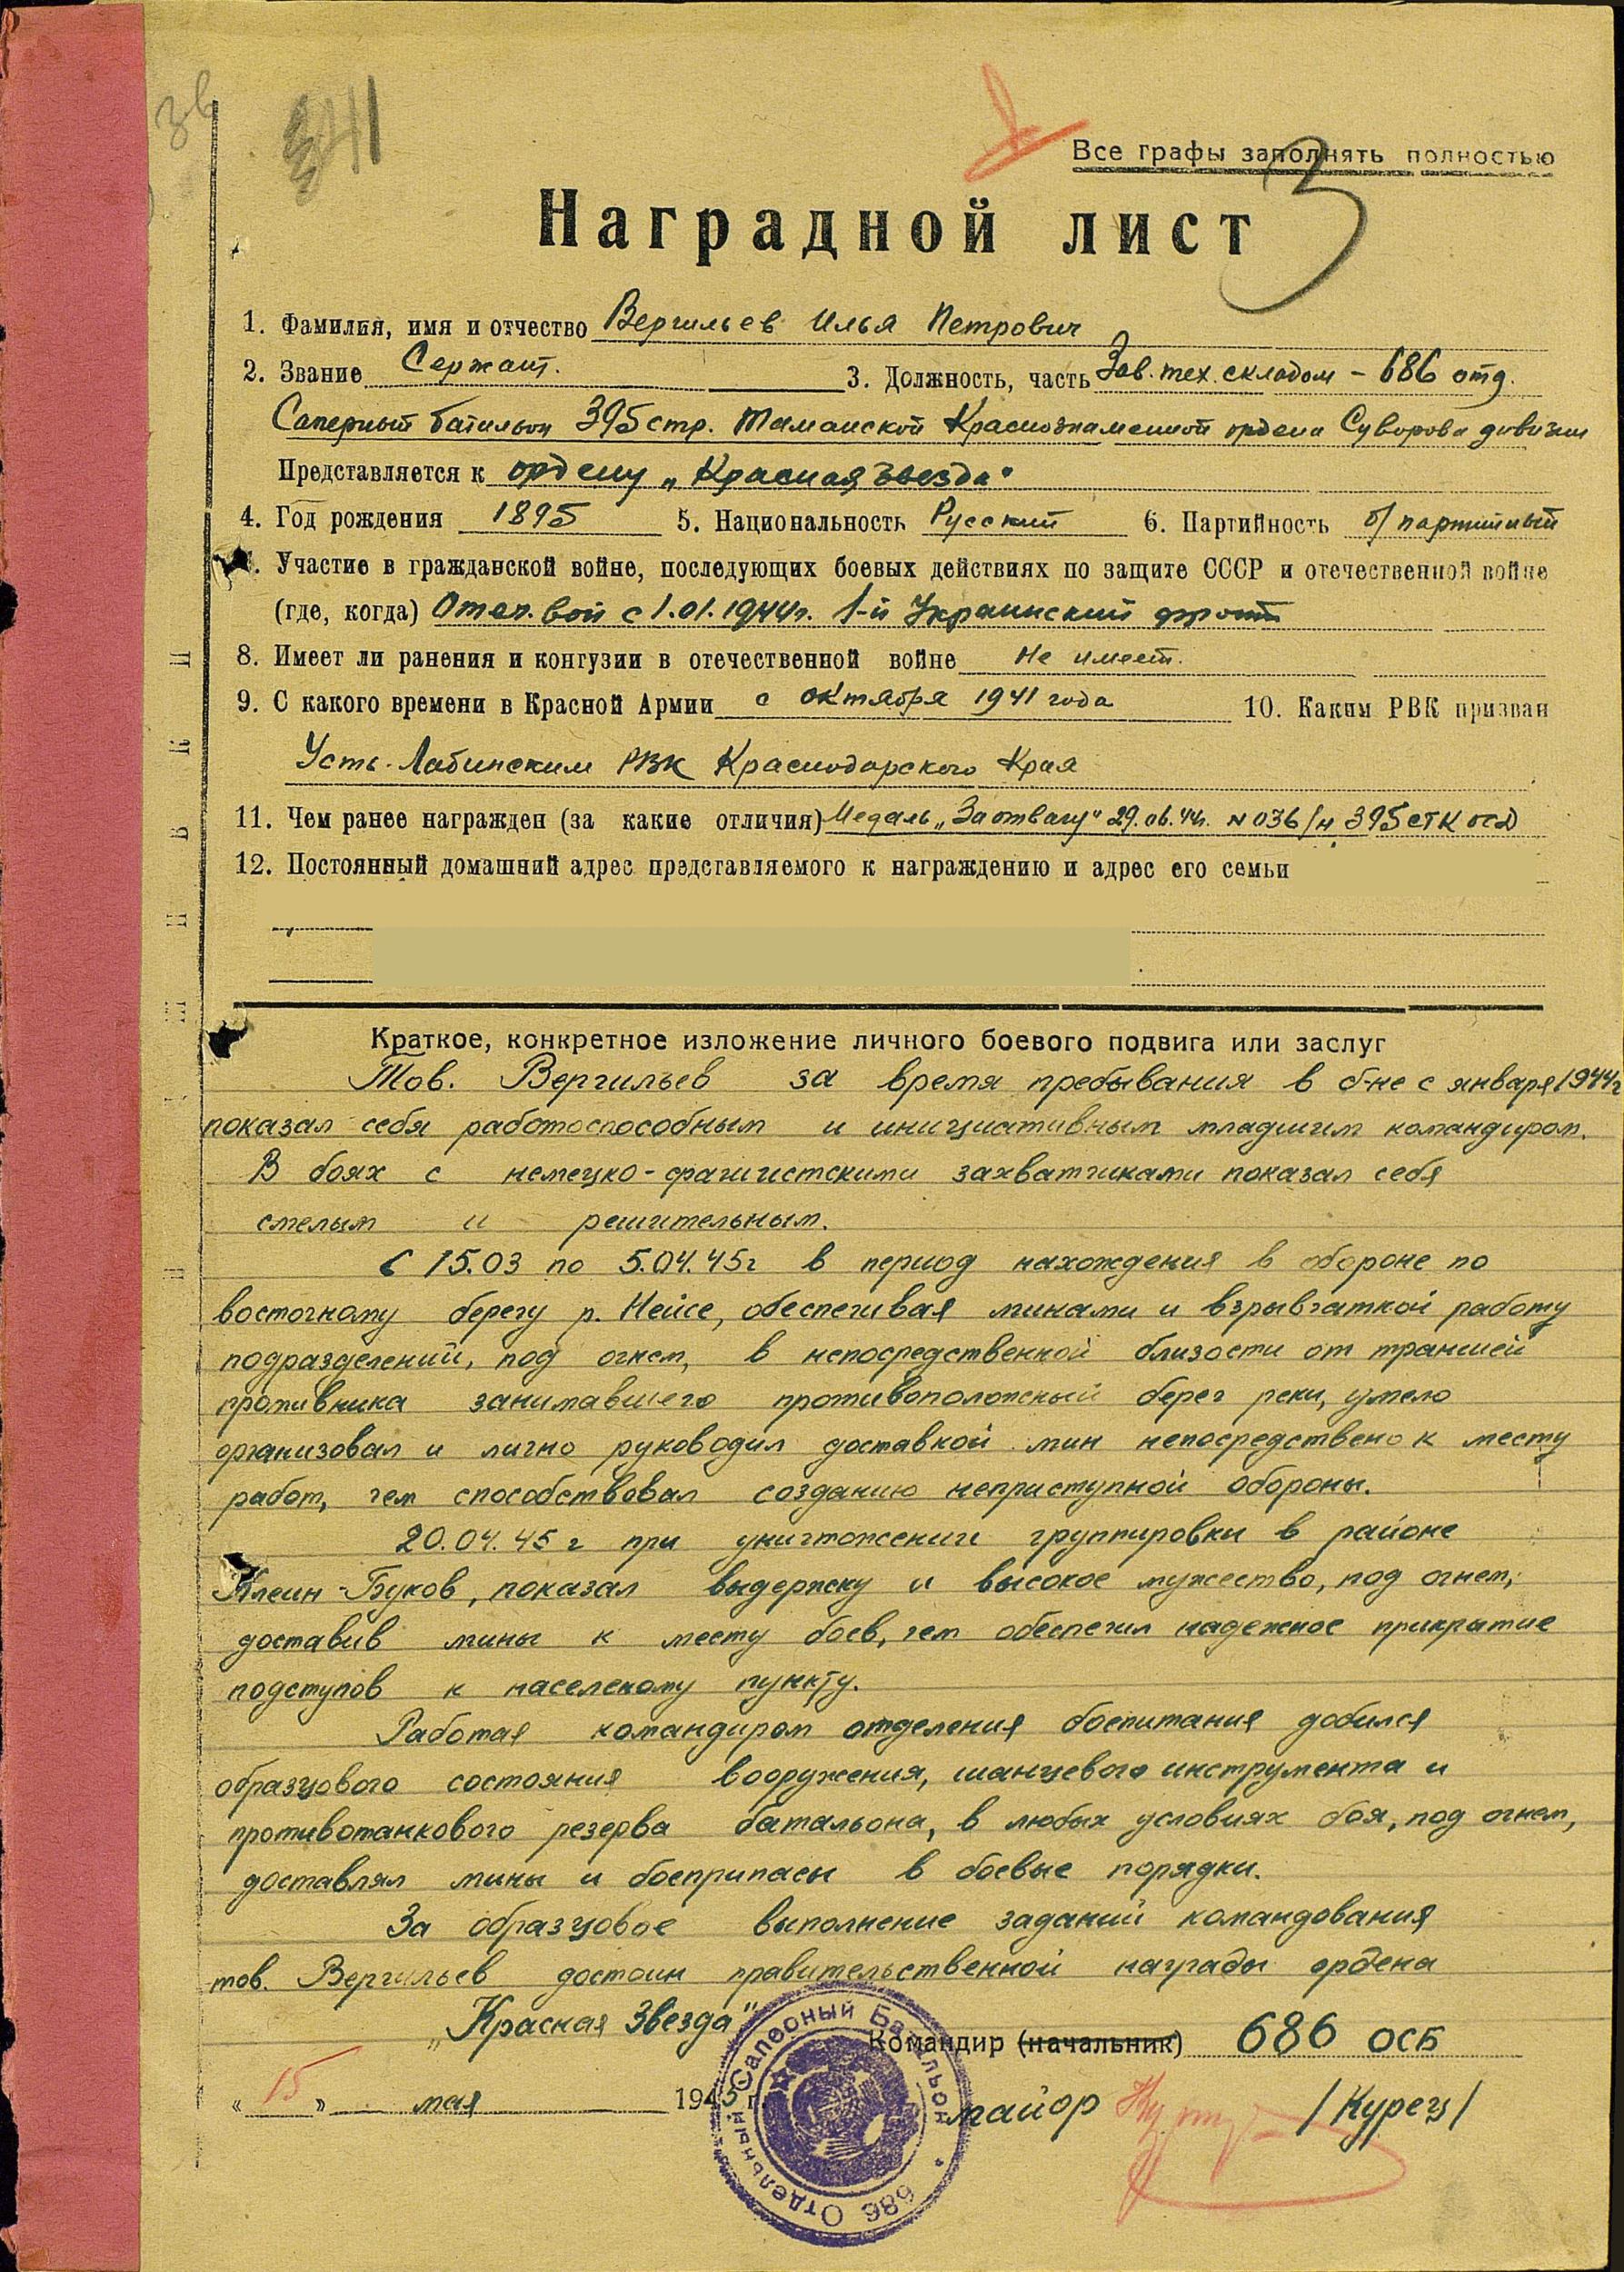 341
Все графы заполнять полностью
3
Наградной лист
1. Фамилия, имя и отчество Вергильев Илья Петрович
2. Звание Сержант. 3. Должность, часть Зав. тех. складом - 686 отд.
Саперный батальон 395 стр. Таманской Краснознаменной ордена Суворова дивизии
Представляется к ордену „Красная Звезда"
4. Год рождения 1895 5. Национальность Русский 6. Партийность б/партийный
Участие в гражданской войне, последующих боевых действиях по защите СССР и отечественной войне
(где, когда) Отеч. вой с 1.01.1944г. 1-й Украинский фронт
8. Имеет ли ранения и контузии в отечественной войне Не имеет.
9. С какого времени в Красной Армии с октября 1941 года 10. Каким РВК призван
Усть-Лабинским РВК Краснодарского Края
11. Чем ранее награжден (за какие отличия) Медаль „За отвагу" 29.06.44г. № 036/н 395 СТКОСД
12. Постоянный домашний адрес представляемого к награждению и адрес его семьи
Краткое, конкретное изложение личного боевого подвига или заслуг
Тов. Вергильев за время пребывания в б-не с января 1944г
показал себя работоспособным и инициативным младшим командиром.
В боях с немецко-фашистскими захватчиками показал себя
смелым и решительным.
С 15.03 по 5.04.45г в период нахождения в обороне по
восточному берегу р. Нейсе, обеспечивая минами и взрывчаткой работу
подразделений, под огнем, в непосредственной близости от траншей
противника занимавшего противоположный берег реки, умело
организовал и лично руководил доставкой мин непосредствено к месту
работ, чем способствовал созданию неприступной обороны.
20.04.45 г при уничтожении группировки в районе
Клеин-Буков, показал выдержку и высокое мужество, под огнем,
доставив мины к месту боев, чем обеспечил надежное прикрытие
подступов к населеному пункту.
Работая командиром отделения боепитания добился
образцового состояния вооружения, шанцевого инструмента и
противотанкового резерва батальона, в любых условиях боя, под огнем,
доставлял мины и боеприпасы в боевые порядки.
За образцовое выполнение заданий командования
тов. Вергильев достоин правительственной награды ордена
„Красная Звезда"
Командир (начальник) 686 ОСБ
« 15 » мая 1945 г. майор /Курец/
686 Отдельный Саперный Батальон